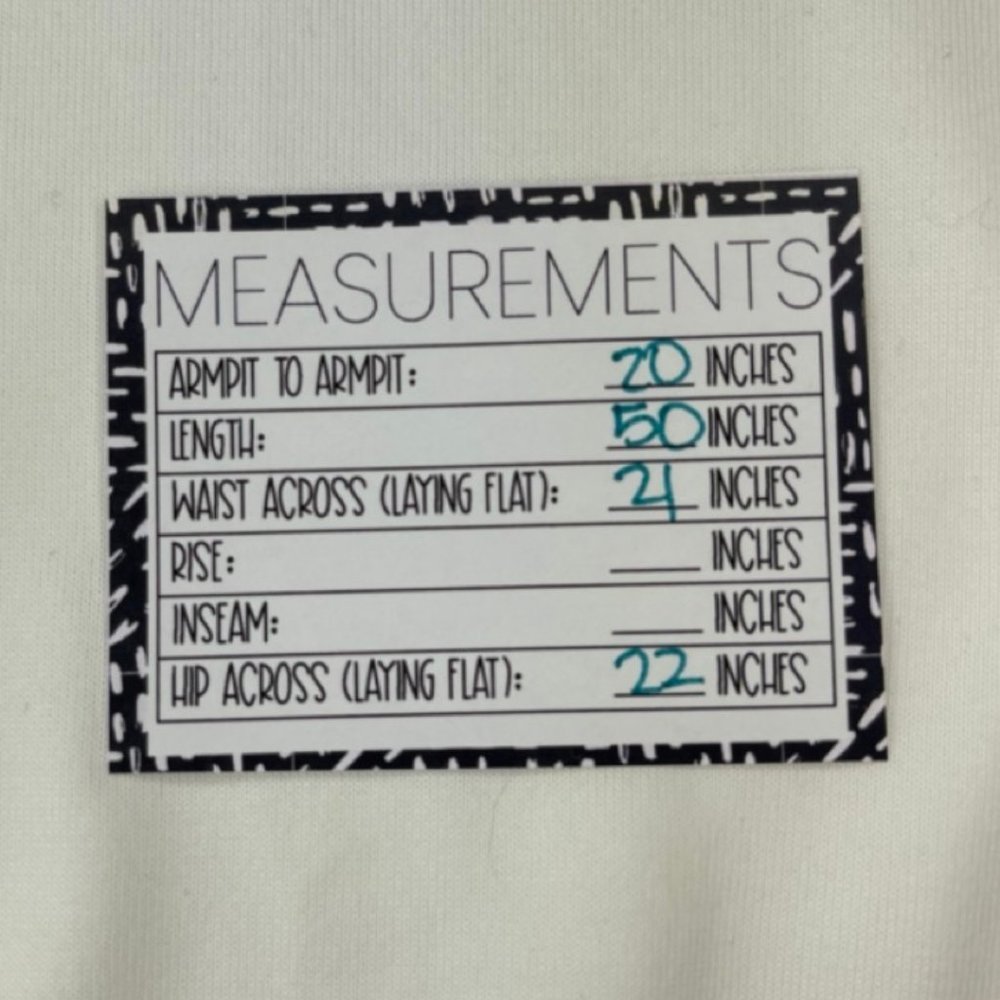 MEASUREMENTS
ARMPIT TO ARMPIT: 20 INCHES
LENGTH: 50 INCHES
WAIST ACROSS (LAYING FLAT): 21 INCHES
RISE: ____ INCHES
INSEAM: ____ INCHES
HIP ACROSS (LAYING FLAT): 22 INCHES